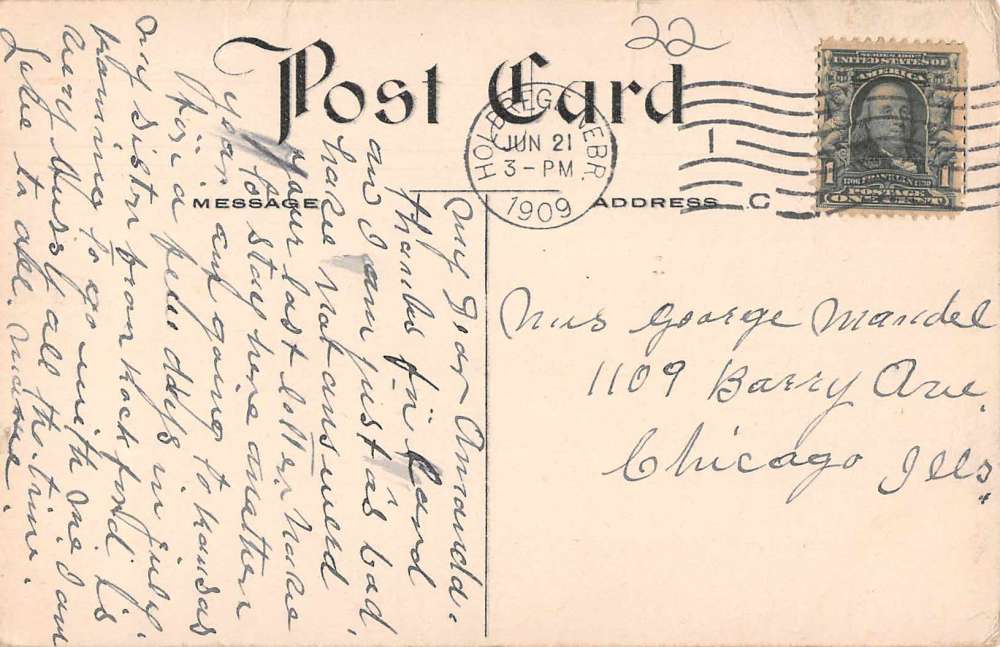 22
Post Card
HOLDREGE, NEBR.
JUN 21
3-PM
1909
1
SERIES 1902
UNITED STATES OF
AMERICA
1 POSTAGE 1
ONE CENT
MESSAGE
ADDRESS
My dear Amanda.
thanks for card
an I am just as bad,
have not answerd
your last letter, have
to stay here another
year am going to kansas
for a few days in july.
my sister from Rockford is
komming to go with me I am
very bussy all the time.
Love to all.
Mrs George Mandel
1109 Barry Ave.
Chicago Ills.